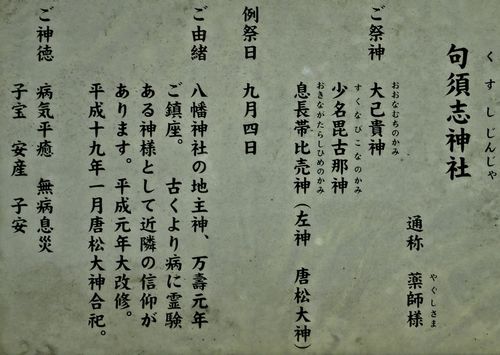 句須志神社
くすしじんじゃ
通称 薬師様
やくしさま
ご祭神 大己貴神
おおなむちのかみ
少名毘古那神
すくなびこなのかみ
息長帯比売神(左神 唐松大神)
おきながたらしひめのかみ
例祭日 九月四日
ご由緒 八幡神社の地主神、万壽元年
ご鎮座。 古くより病に霊験
ある神様として近隣の信仰が
あります。平成元年大改修。
平成十九年一月唐松大神合祀。
ご神徳 病気平癒 無病息災
子宝 安産 子安